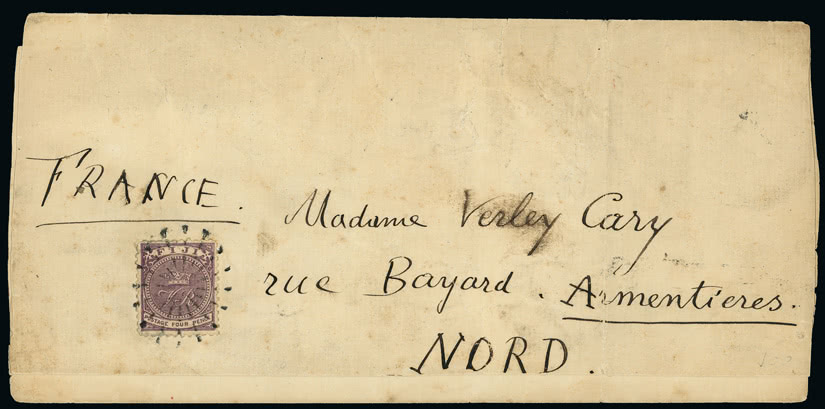 FRANCE.
Madame Verley Cary
rue Bayard. Armentieres.
NORD.
FIJI
POSTAGE FOUR PENCE